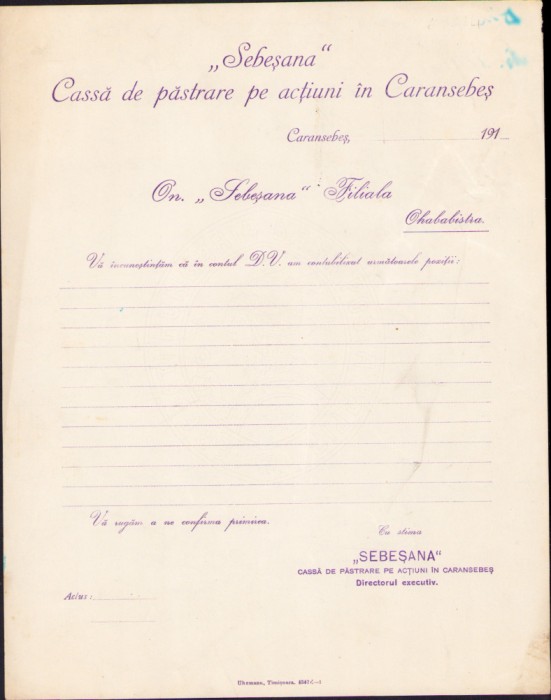 „Sebeșana“
Cassă de păstrare pe acțiuni în Caransebeș
Caransebeș, 191
On. „Sebeșana“ Filiala
Ohababistra.
Vă încunoștințăm că în contul D.V. am contabilizat următoarele poziții:
Vă rugăm a ne confirma primirea.
Cu stima
„SEBEȘANA“
CASSĂ DE PĂSTRARE PE ACȚIUNI ÎN CARANSEBEȘ
Directorul executiv.
Acluse:
Uhrmann, Timișoara.